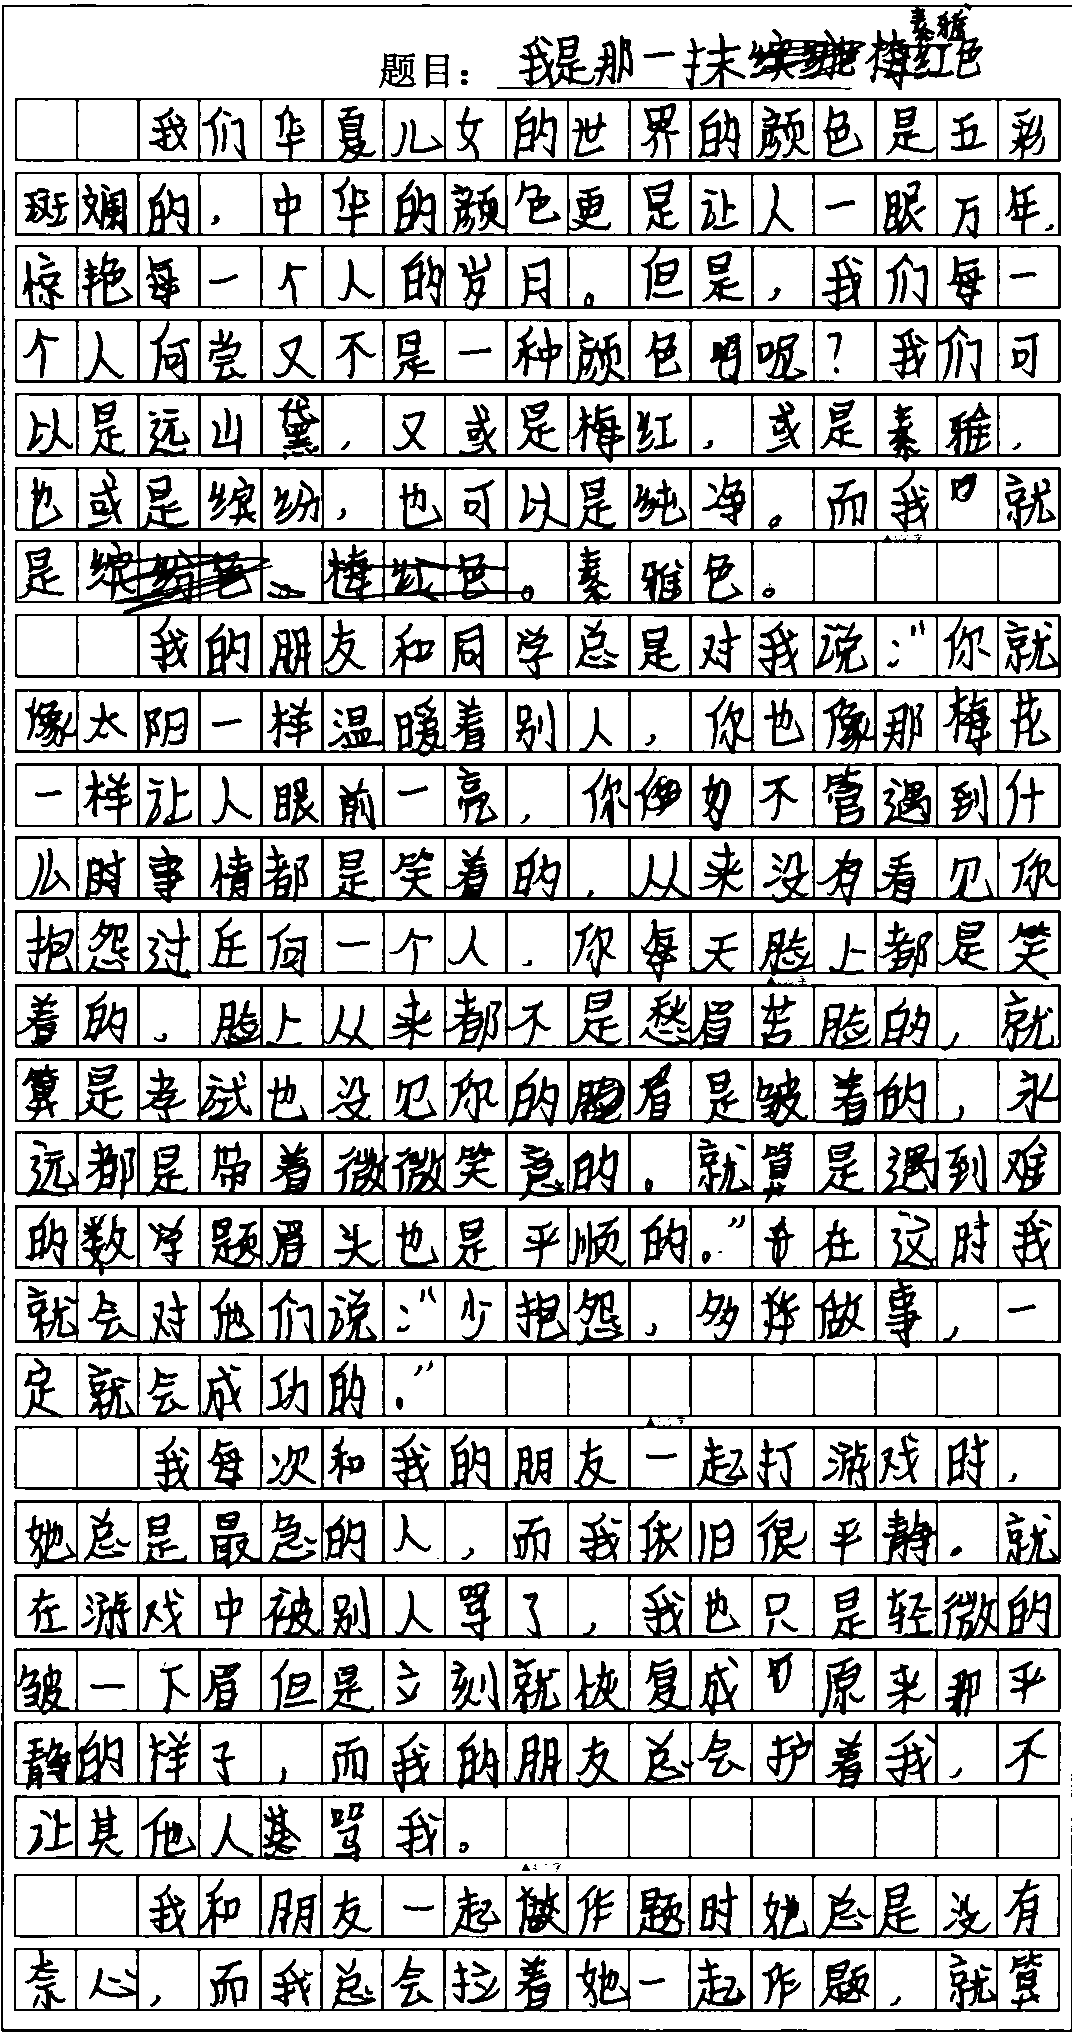 题目：我是那一抹素雅色
我们华夏儿女的世界的颜色是五彩
斑斓的，中华的颜色更是让人一眼万年，
惊艳每一个人的岁月。但是，我们每一
个人何尝又不是一种颜色呢？我们可
以是远山黛，又或是梅红，或是素雅，
也或是缤纷，也可以是纯净。而我就
是素雅色。
我的朋友和同学总是对我说：“你就
像太阳一样温暖着别人，你也像那梅花
一样让人眼前一亮，你不管遇到什
么时事情都是笑着的，从来没有看见你
抱怨过任何一个人，你每天脸上都是笑
着的，脸上从来都不是愁眉苦脸的，就
算是考试也没见你的眉是皱着的，永
远都是带着微微笑意的。就算是遇到难
的数学题眉头也是平顺的。”在这时我
就会对他们说：“少抱怨，多做事，一
定就会成功的。”
我每次和我的朋友一起打游戏时，
她总是最急的人，而我依旧很平静。就
在游戏中被别人骂了，我也只是轻微的
皱一下眉但是立刻就恢复成原来那平
静的样子，而我的朋友总会护着我，不
让其他人骂我。
我和朋友一起作题时她总是没有
奈心，而我总会拉着她一起作题，就算